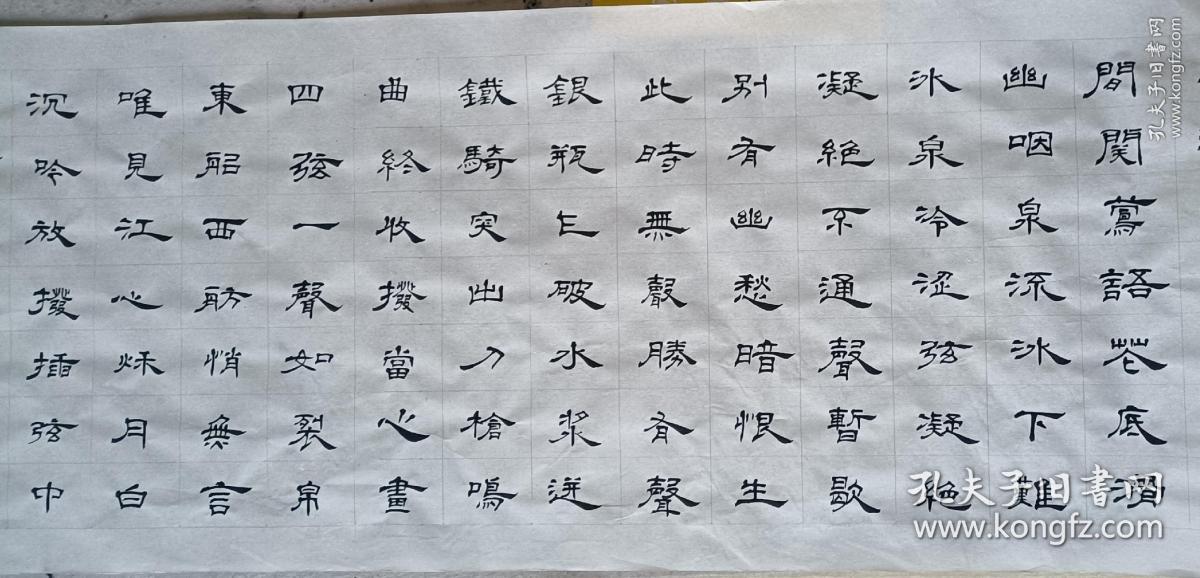 間關鶯語花底滑
幽咽泉流冰下難
冰泉冷澀弦凝絕
凝絕不通聲暫歇
別有幽愁暗恨生
此時無聲勝有聲
銀瓶乍破水漿迸
鐵騎突出刀槍鳴
曲終收撥當心畫
四弦一聲如裂帛
東船西舫悄無言
唯見江心秋月白
沉吟放撥插弦中
孔夫子旧书网
www.kongfz.com
孔夫子旧书网
www.kongfz.com